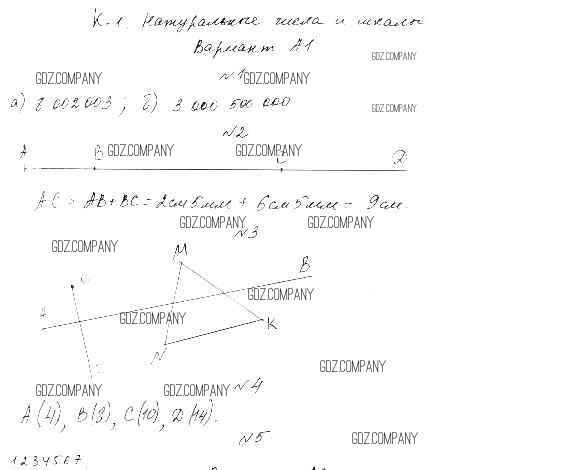 К-1. Натуральные числа и шкалы
Вариант А1
GDZ.COMPANY
GDZ.COMPANY
№1 GDZ.COMPANY
а) 8 002 003; б) 3 000 500 000
GDZ.COMPANY
№2
A B GDZ.COMPANY GDZ.COMPANY C D
AC = AB + BC = 2см 5мм + 6см 5мм = 9см.
GDZ.COMPANY GDZ.COMPANY
№3
GDZ.COMPANY
M
C B
GDZ.COMPANY
A GDZ.COMPANY K
N
D GDZ.COMPANY
GDZ.COMPANY GDZ.COMPANY №4
A(4), B(8), C(10), D(14).
№5 GDZ.COMPANY
1234567